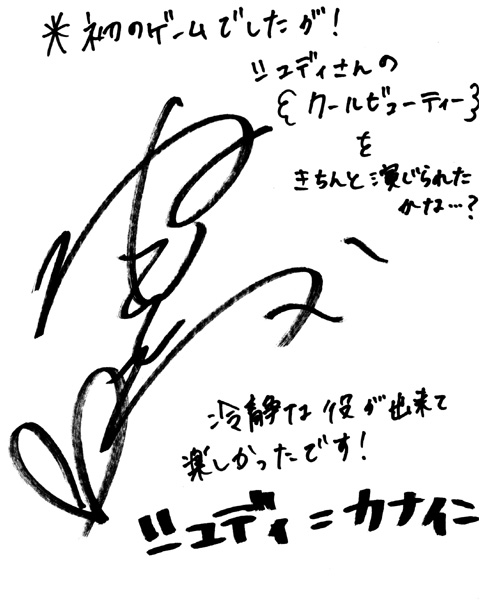 *初のゲームでしたが!
ジュディさんの
{クールビューティー}
を
きちんと演じられた
かな…?
冷静な役が出来て
楽しかったです!
ジュディ=カナイニ